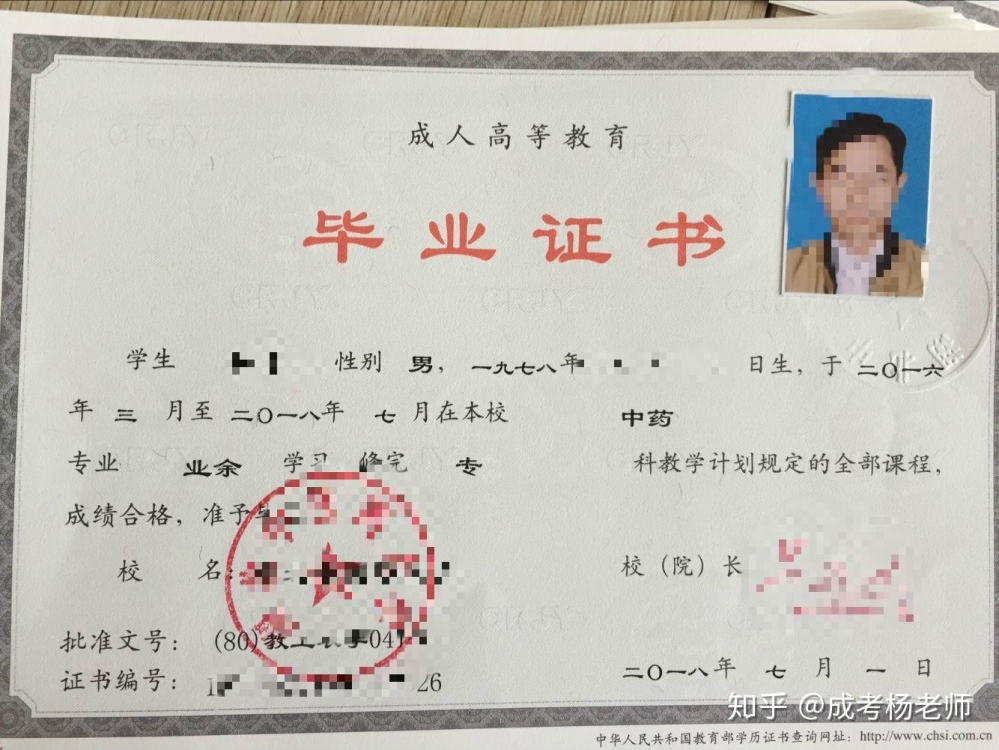 成人高等教育
毕业证书
学生 性别 男，一九七八年 日生，于 二〇一六
年 三 月至 二〇一八年 七 月在本校 中药
专业 业余 学习 修完 专 科教学计划规定的全部课程，
成绩合格，准予
校 名： 校（院）长
批准文号： (80)教工农字041
证书编号： 1 26 二〇一八年 七 月 一 日
知乎 @成考杨老师
中华人民共和国教育部学历证书查询网址：http://www.chsi.com.cn